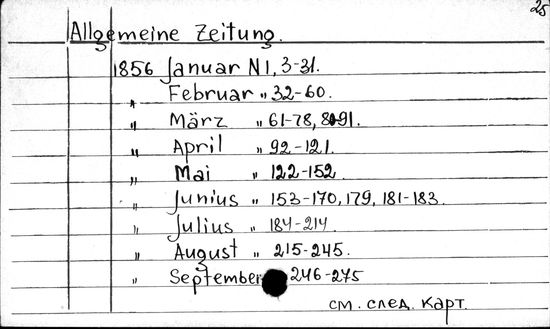 25
Allgemeine Zeitung.
1856 Januar N1, 3-31.
" Februar " 32-60.
" März " 61-78, 80-91.
" April " 92-121.
" Mai " 122-152.
" Junius " 153-170, 179, 181-183.
" Julius " 184-214.
" August " 215-245.
" September 246-275
см. след. карт.